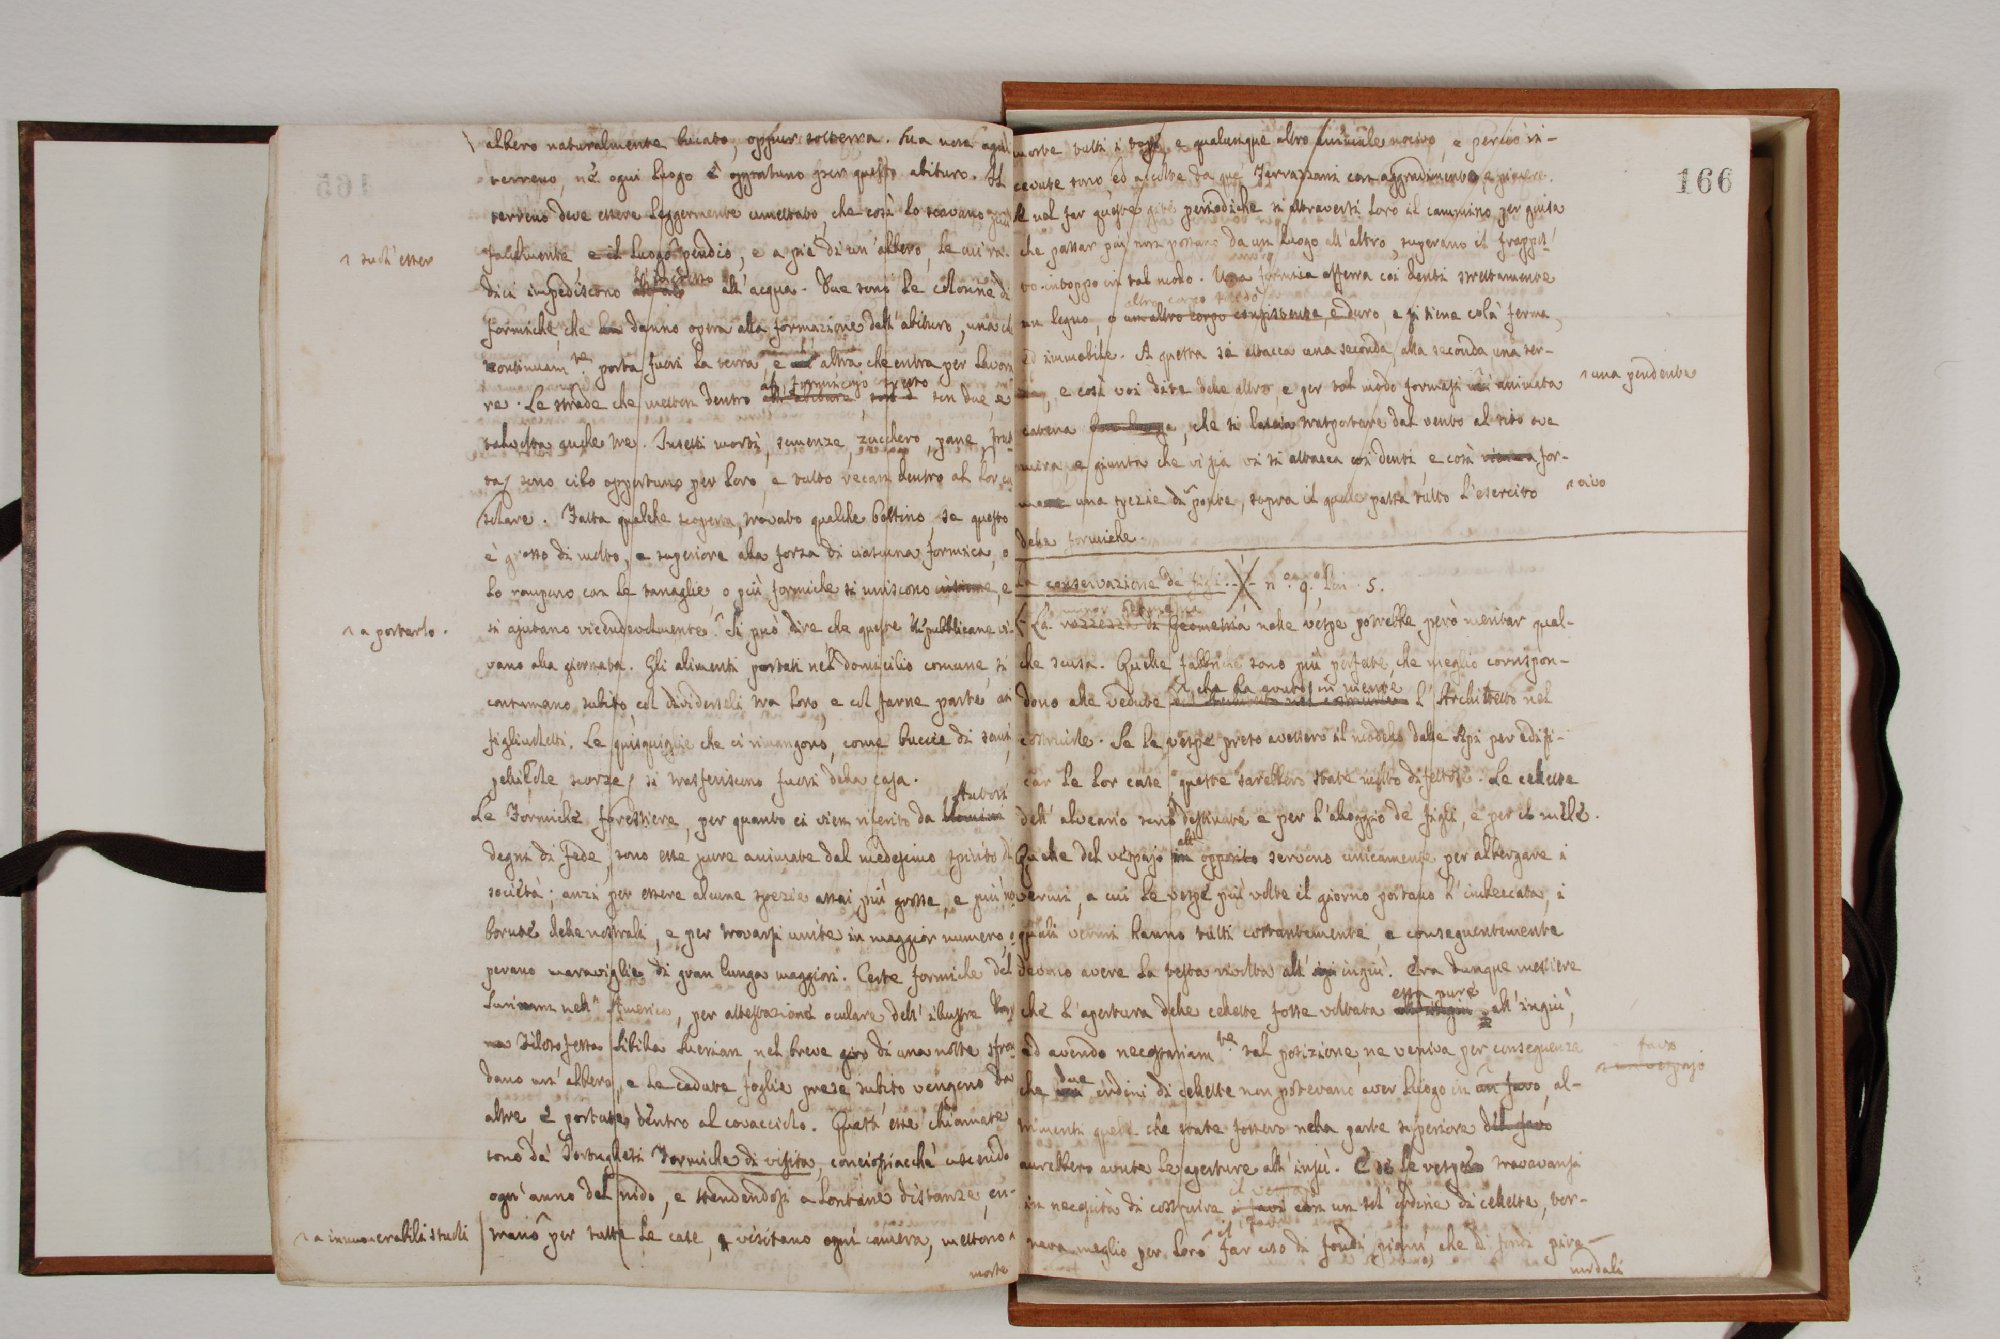 albero naturalmente bucato, oppur sotterra. Ma non ogni
terreno, nè ogni luogo è opportuno per questo abituro. Il
terreno deve essere leggermente umettato, che così lo scavano più
^ such'esser
facilmente e il luogo pendio, e a piè di un albero, le cui ra-
dici impediscono l'ingresso all'acqua. Due sono le colonne di
formiche, che danno opera alla formazione dell'abituro, una ch
continuam.te porta fuori la terra, e altra che entra per lavora
re. Le strade che metton dentro al formicajo stesso son due, e
talvolta anche tre. Insetti morti, semenze, zucchero, pane, frut
ta, sono cibo opportuno per loro, e tutto recan dentro al lor ca
solare. Fatta qualche scoperta, trovato qualche bottino se questo
è grosso di molto, e superiore alla forza di ciascuna formica, o
lo rompono con le tanaglie, o più formiche si uniscono insieme, e
^ a portarlo.
si ajutano vicendevolmente.^ Si può dire che queste Repubblicane vi-
vano alla giornata. Gli alimenti portati nel domicilio comune, si
consumano subito col dividerseli tra loro, e col farne parte ai
figliuoletti. Le quisquiglie che ci rimangono, come buccie di semi,
pellicole, scorze, si trasferiscono fuori della casa.
Autori
Le Formiche forestiere, per quanto ci vien riferito da Uomini
degni di fede, sono esse pure animate dal medesimo spirito di
società; anzi per essere alcune spezie assai più grosse, e più ro
buste delle nostrali, e per trovarsi unite in maggior numero, o
perano maraviglie di gran lunga maggiori. Certe formiche del
Surinam nell'America, per attestazione oculare dell'illustre
Filosofessa Sibilla Merian nel breve giro di una notte sfron
dano un'albero, e le cadute foglie prese subito vengono da
altre, e portate dentro al covacciolo. Questi esse chiamate
sono da' Portughesi Formiche di visita, conciossiacchè uscendo
ogn'anno del nido, e stendendosi a lontane distanze, en-
^ a innumerabili stuoli
trano^ per tutte le case, e visitano ogni camera, mettono a
morte
166
morte tutti i topi, e qualunque altro animale nocivo, e perciò ri-
cevute sono, ed accolte da que' Terrazzani con aggradimento, e piacere.
Se nel far queste gite periodiche si attraversi loro il cammino per guisa
che passar più non possano da un luogo all'altro, superano il frappos-
to intoppo in tal modo. Una formica afferra coi denti strettamente
altro corpo sodo
un legno, o un altro corpo consistente, e duro, e si tiene colà ferma,
ed immobile. A questa se attacca una seconda, alla seconda una ter-
^ una pendente
za, e così voi dite delle altre e per tal modo formasi un' animata
catena, che si lascia trasportare dal vento al sito ove
mira, e giunta che vi sia vi si attacca coi denti e così for-
^ vivo
ma una spezie di^ ponte, sopra il quale passa tutto l'esercito
delle formiche.
La conservazione de' figli. n.o 9. Lin. 5.
minor
La rozzezza di Geometria nelle vespe potrebbe però meritar qual-
che scusa. Quelle fabbriche sono più perfette, che meglio corrispon-
dono alle vedute che ha avuto in mente l'Architetto nel
costruirle. Se le vespe preso avessero il modello dalle Api per edifi-
car le lor case, queste sarebbero state molto difettose. Le cellette
dell'alveario sono destinate e per l'alloggio de' figli, e per il mele.
Quelle del vespajo all' opposito servono unicamente per albergare i
vermi, a cui le vespe più volte il giorno portano l'imbeccata, i
quali vermi hanno tutti costantemente, e conseguentemente
devono avere la testa rivolta all'ingiù. Era dunque mestiere
essa pure
che l'apertura delle cellette fosse voltata all'ingiù,
favo
^ un vespajo
ed avendo necessariam.te tal posizione, ne veniva per conseguenza
che due ordini di cellette non potevano aver luogo in un favo, al-
trimenti quelle che state fossero nella parte superiore del favo
avrebbero avute le aperture all'insù. E se le vespe trovavansi
in necessità di costruire i favi con un sol'ordine di cellette, tor-
nava meglio per loro^ il far uso di fondi piani che di fondi pira-
midali